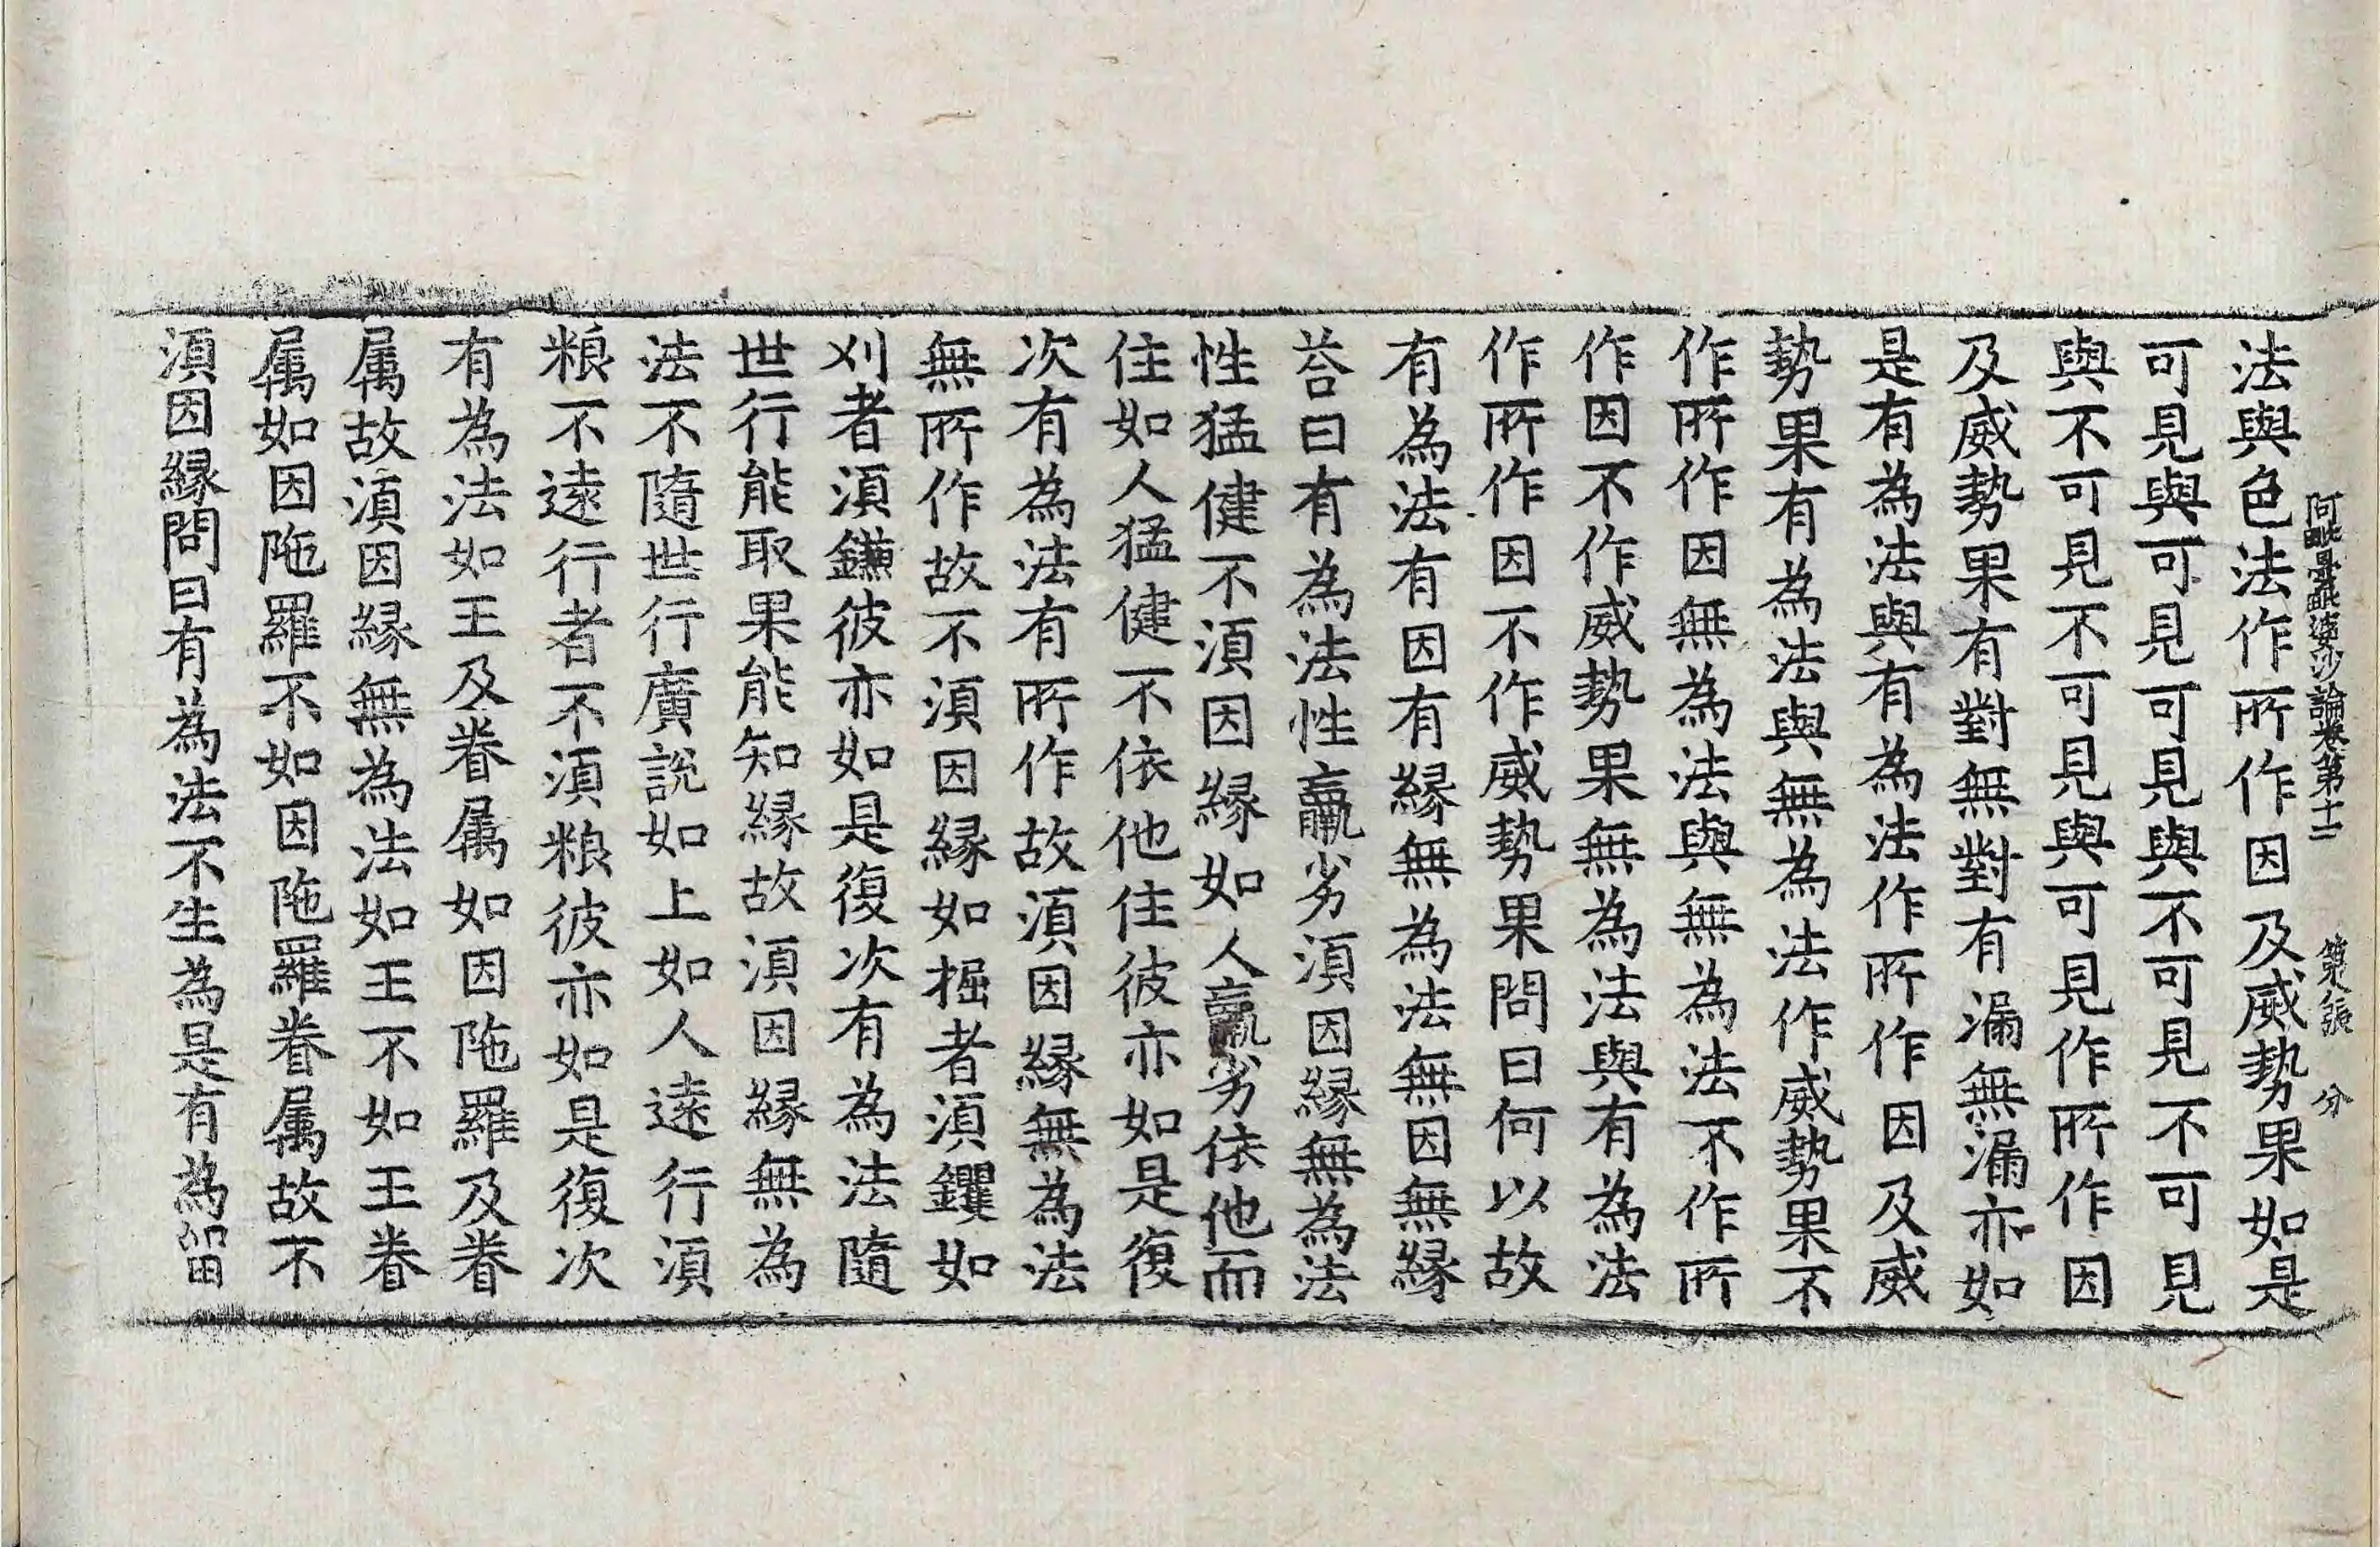 阿毗曇毗婆沙論卷第十二 第七張 分
法與色法作所作因及威勢果如是
可見與可見可見與不可見不可見
與不可見不可見與可見作所作因
及威勢果有對無對有漏無漏亦如
是有為法與有為法作所作因及威
勢果有為法與無為法作威勢果不
作所作因無為法與無為法不作所
作因不作威勢果無為法與有為法
作所作因不作威勢果問曰何以故
有為法有因有緣無為法無因無緣
荅曰有為法性羸劣湏因緣無為法
性猛健不湏因緣如人羸劣依他而
住如人猛健不依他住彼亦如是復
次有為法有所作故湏因緣無為法
無所作故不湏因緣如掘者湏钁如
刈者湏鎌彼亦如是復次有為法隨
世行能取果能知緣故湏因緣無為
法不隨世行廣說如上如人遠行湏
粮不遠行者不湏粮彼亦如是復次
有為法如王及眷属如因陁羅及眷
属故湏因緣無為法如王不如王眷
属如因陁羅不如因陁羅眷属故不
湏因緣問曰有為法不生為是有為留